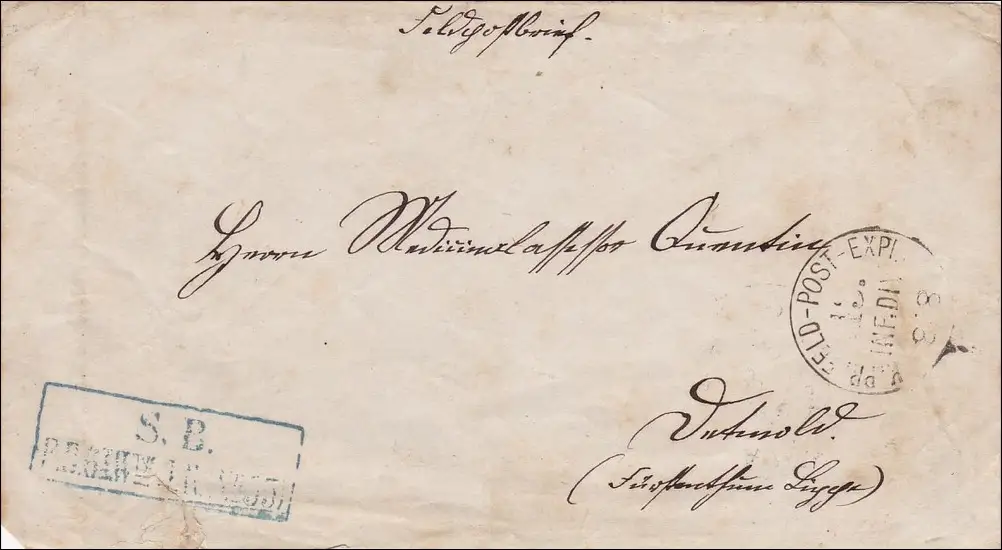 Feldpostbrief.
Herrn Medicinalassessor Quentin
FELD-POST-EXP
INF.DIV
8.8
Detmold.
(Fürstenthum Lippe)
S. B.